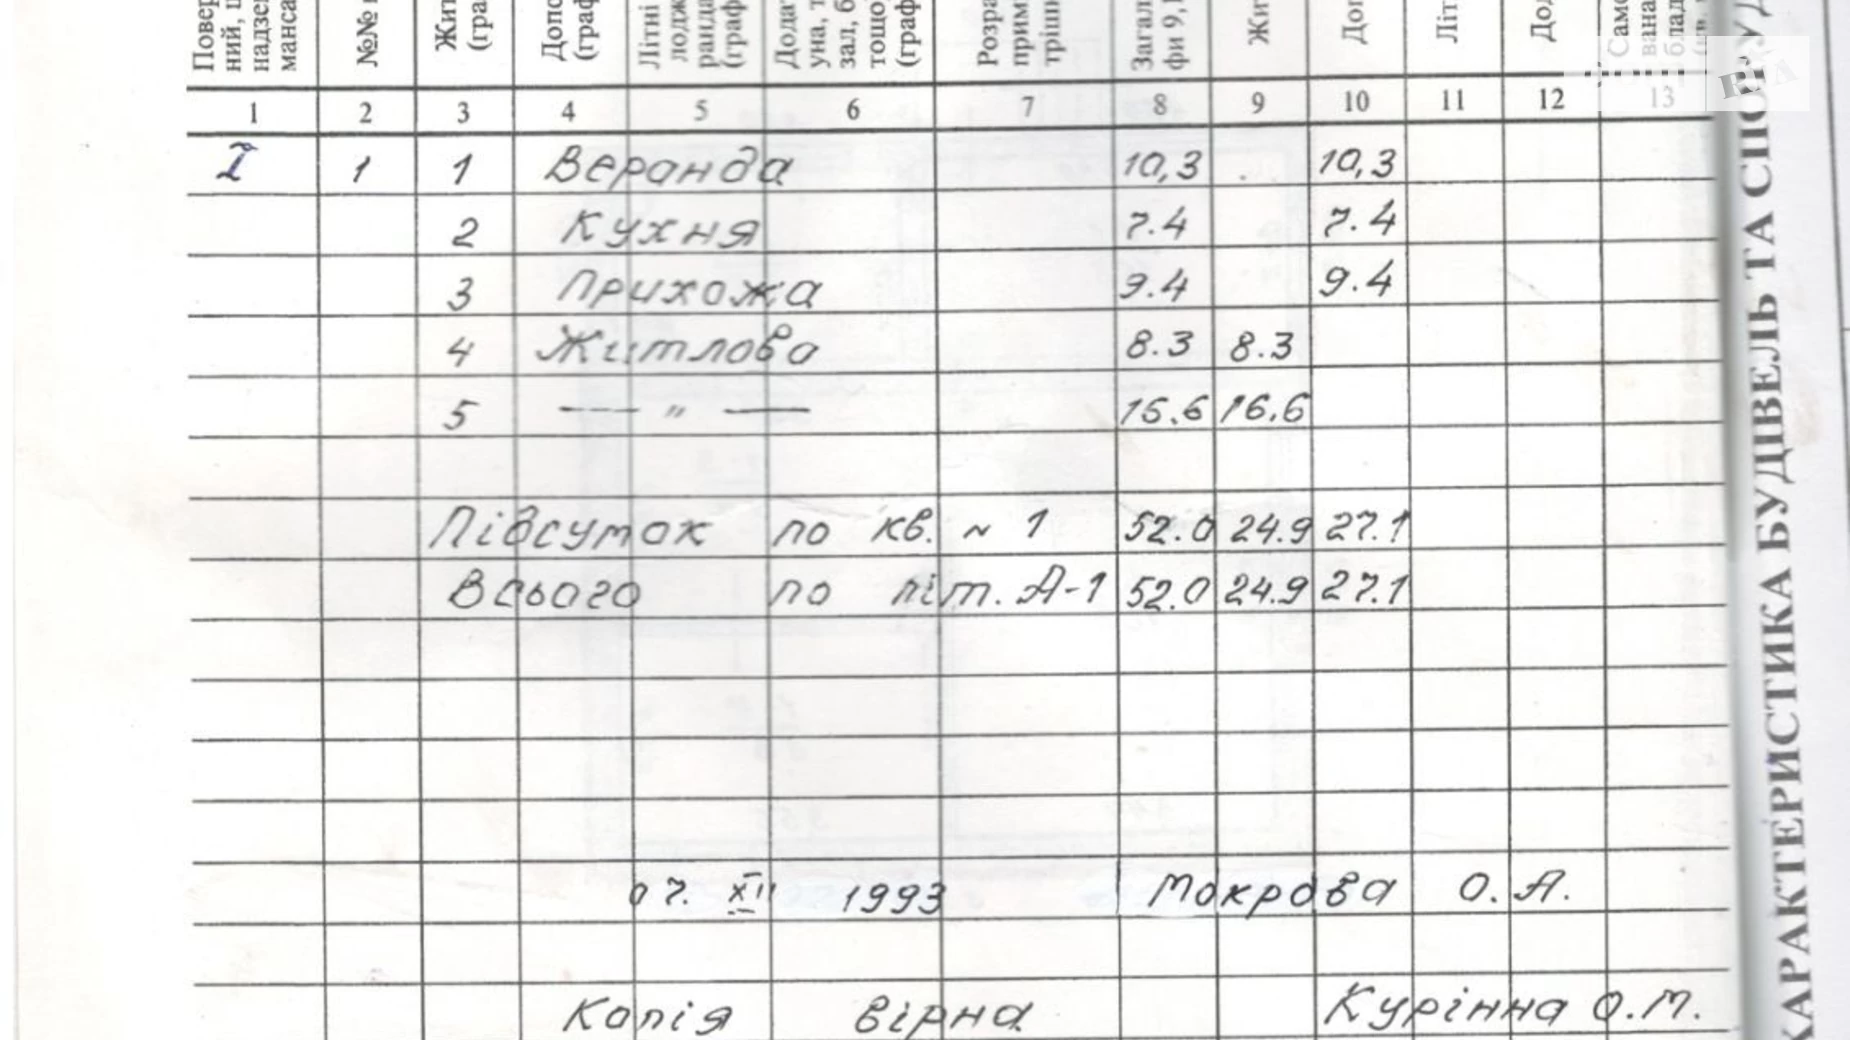 Повер
ний, ц
надзем
манса
№№
Жит
(гра
Допо
(граф
Літні
лодж
ранда
(граф
Додат
уна, т
зал, б
тощо)
(граф
Розра
прим
трішн
Загал
фи 9,1
Жи
До
Літ
Дод
Само
вана
1 2 3 4 5 6 7 8 9 10 11 12 13
I 1 1 Веранда 10,3 10,3
2 Кухня 7.4 7.4
3 Прихожа 9.4 9.4
4 Житлова 8.3 8.3
5 — " — 16.6 16.6
Підсумок по кв. N 1 52.0 24.9 27.1
Всього по літ. А-1 52.0 24.9 27.1
07. XII 1993 Мокрова О. А.
Копія вірна Курінна О.М.
ХАРАКТЕРИСТИКА БУДІВЕЛЬ ТА СПОРУД
RIA